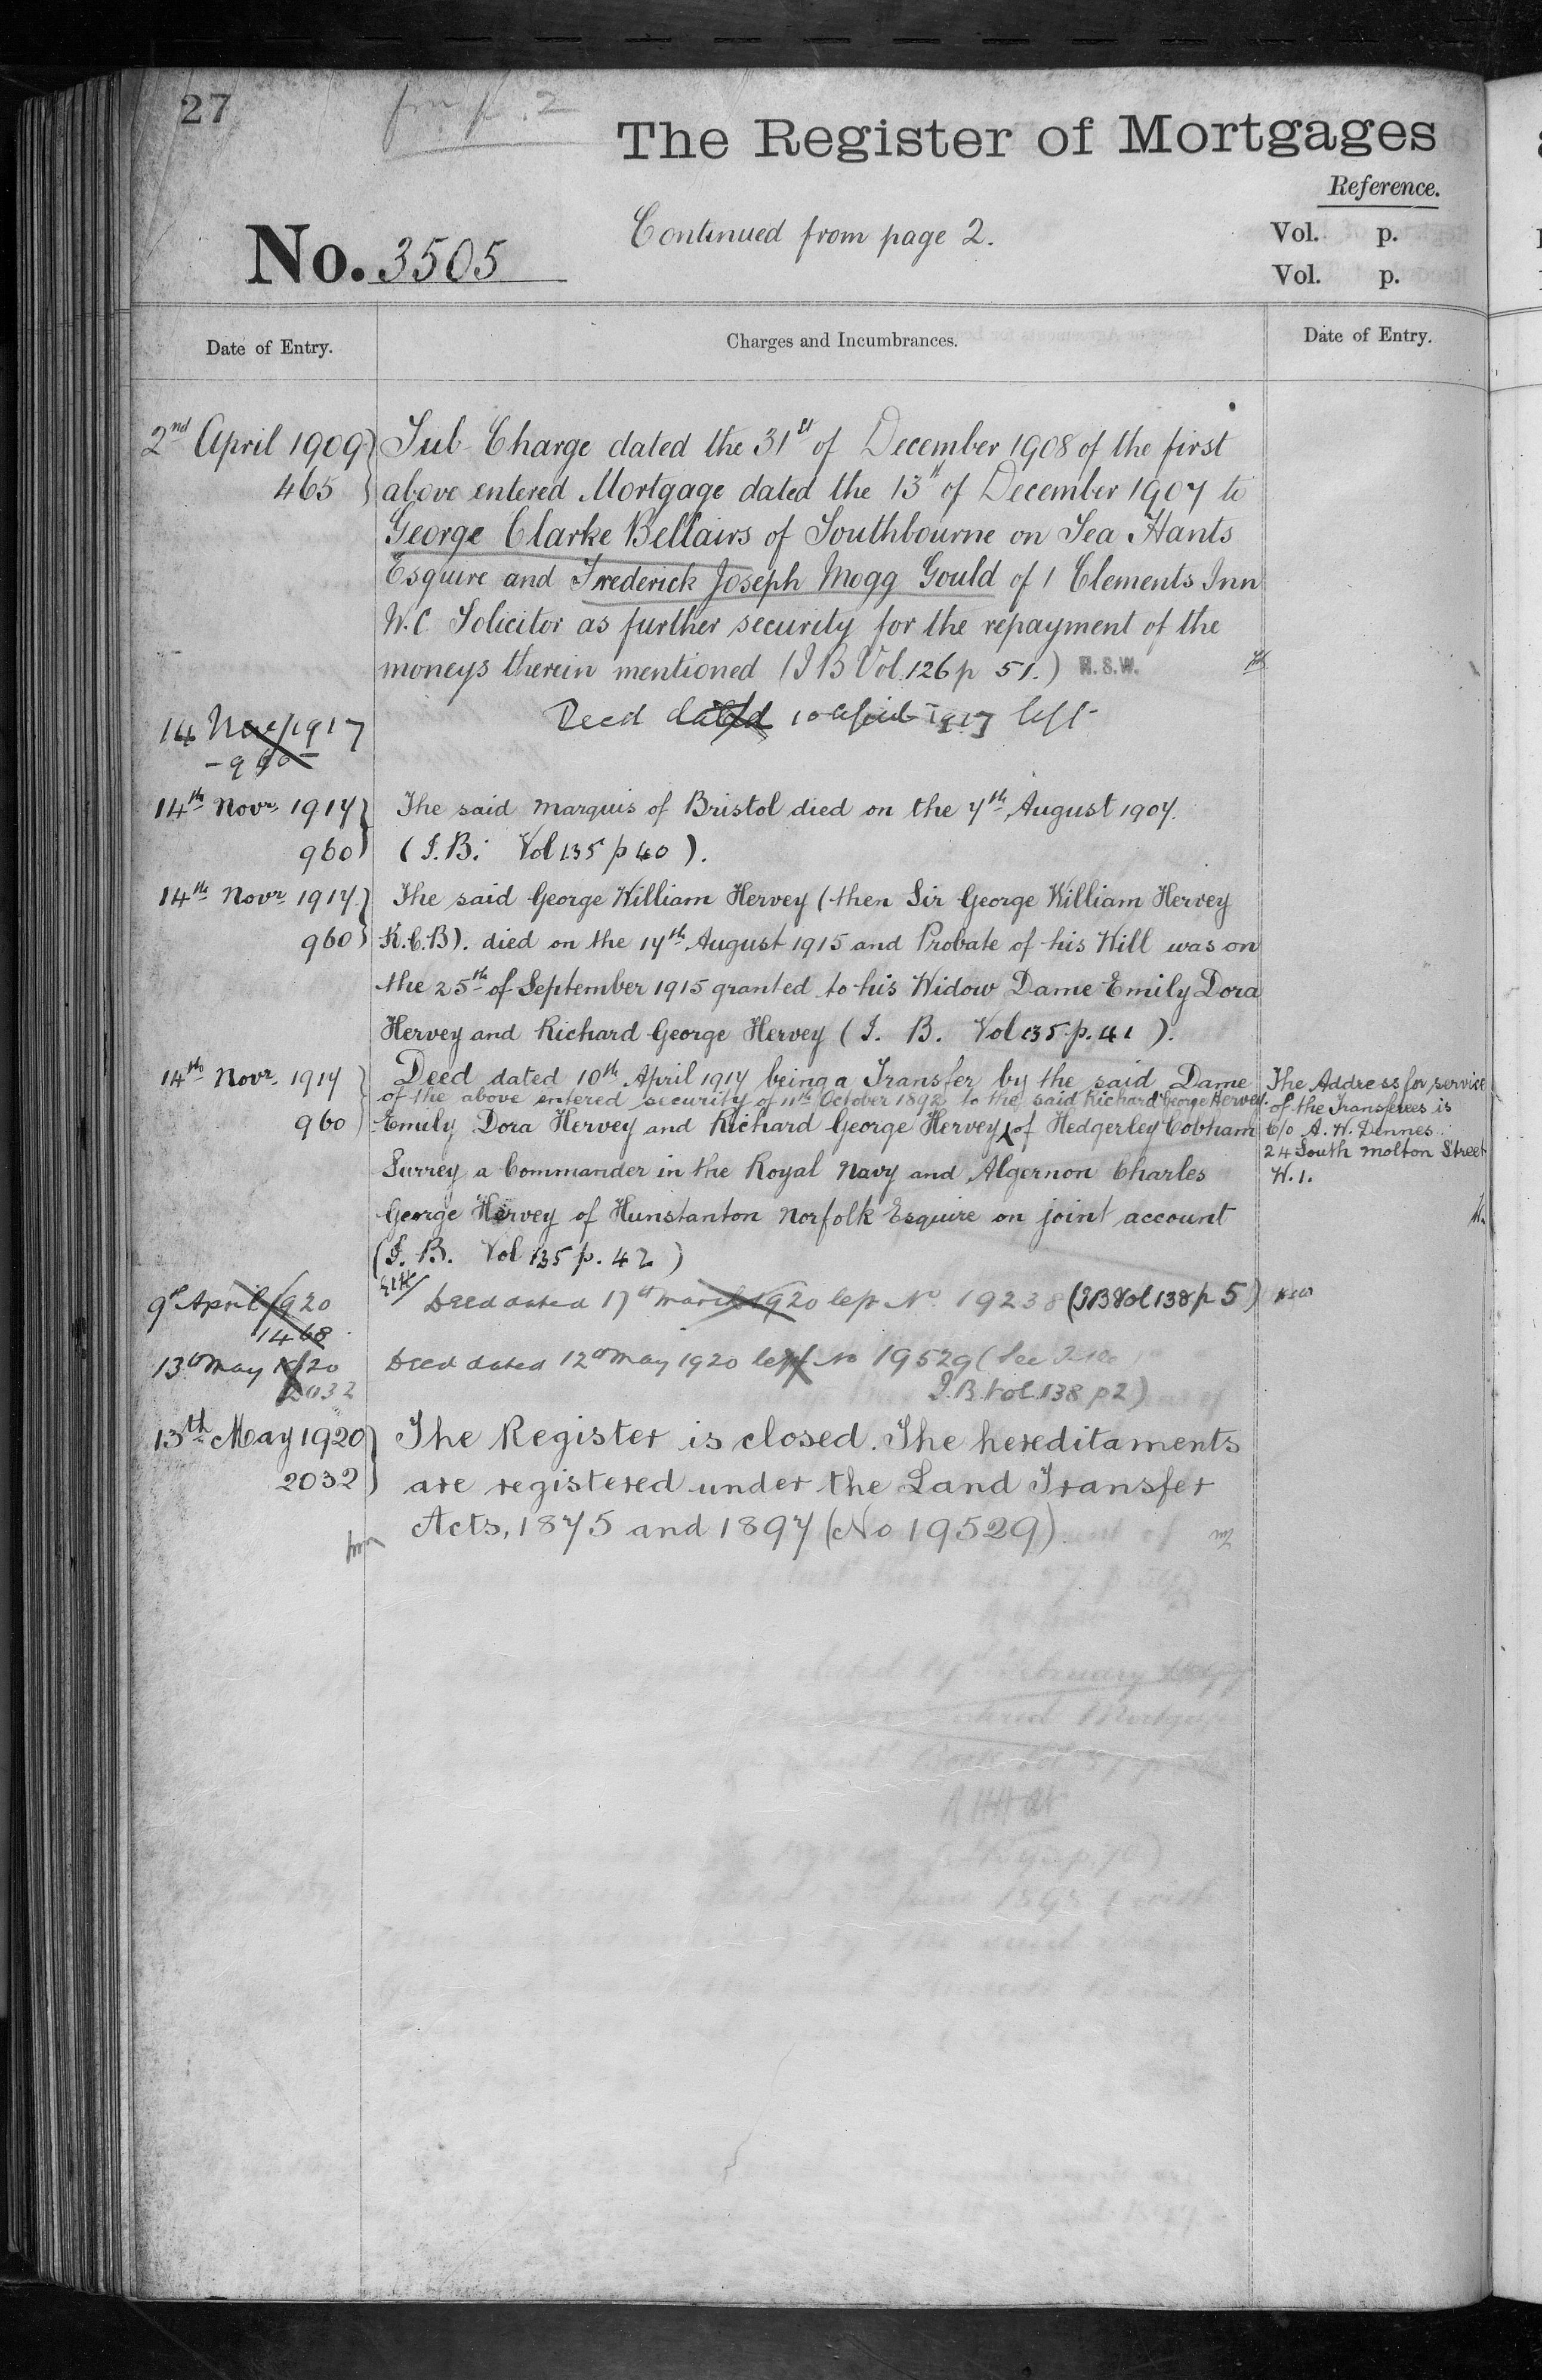 27
The Register of Mortgages
Reference.
Vol. p.
Vol. p.
No. 3505
Continued from page 2.
Date of Entry.
Charges and Incumbrances.
Date of Entry.
2nd April 1909
465
Sub-Charge dated the 31st of December 1908 of the first
above entered Mortgage dated the 13th of December 1907 to
George Clarke Bellairs of Southbourne on Sea Hants
Esquire and Frederick Joseph Mogg Gould of 1 Clements Inn
W.C. Solicitor as further security for the repayment of the
moneys therein mentioned (I B Vol. 126 p 51.) H.S.W.
14 Nov/1917
- 960 -
Deed dated 10 April 1917 left
14th Novr. 1917
960
The said Marquis of Bristol died on the 7th August 1907.
(I.B. Vol 135 p 40).
14th Novr. 1917
960
The said George William Hervey (then Sir George William Hervey
K.C.B). died on the 17th August 1915 and Probate of his Will was on
the 25th of September 1915 granted to his Widow Dame Emily Dora
Hervey and Richard George Hervey (I. B. Vol 135 p. 41).
14th Novr. 1917
960
Deed dated 10th April 1917 being a Transfer by the said Dame
of the above entered security of 11th October 1892 to the said Richard George Hervey
Emily Dora Hervey and Richard George Hervey of Hedgerley Cobham
Surrey a Commander in the Royal Navy and Algernon Charles
George Hervey of Hunstanton Norfolk Esquire on joint account
(I. B. Vol 135 p. 42)
The Address for service
of the Transferees is
C/o A. W. Dennes
24 South Molton Street
W.1.
9th April 1920
1468
Deed dated 17th March 1920 left No. 19238 (I B Vol 138 p 5)
13th May 1920
2032
Deed dated 12th May 1920 left No 19529 (See
I.B. Vol. 138 p 2)
13th May 1920
2032
The Register is closed. The hereditaments
are registered under the Land Transfer
Acts, 1875 and 1897 (No 19529)